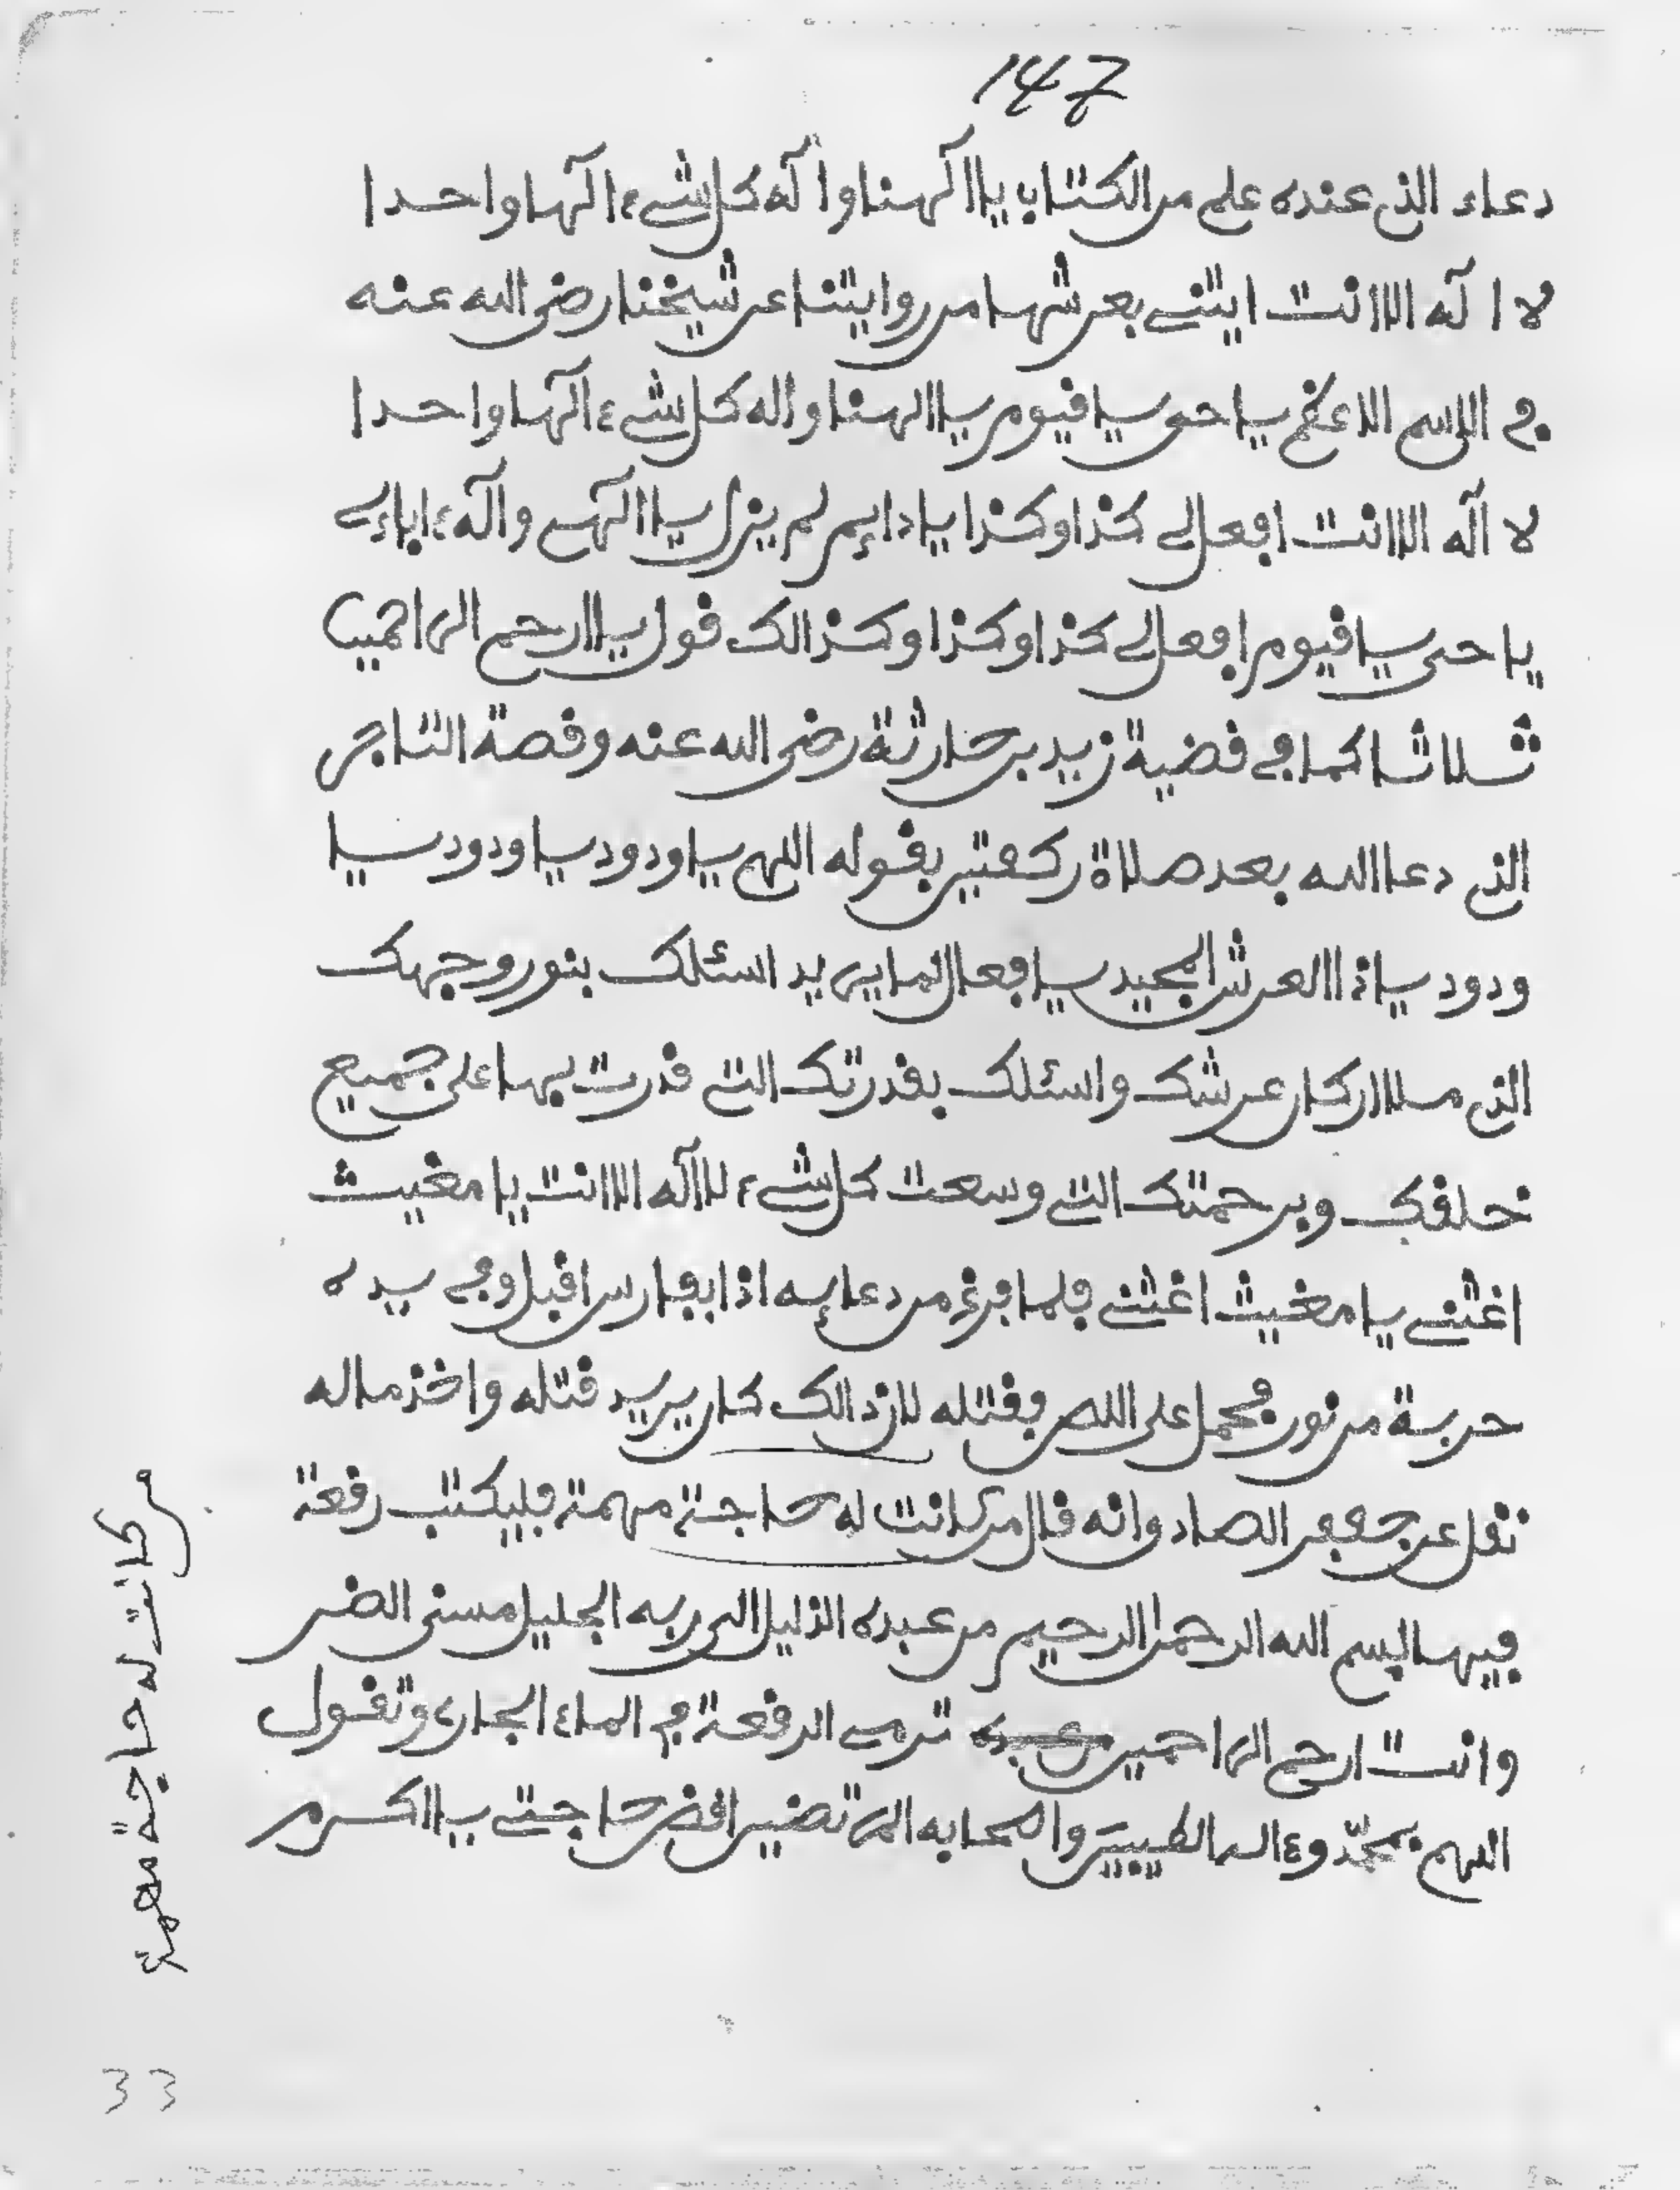 147
دعاء الذى عنده علم من الكتاب يا الهنا واله كل شےء الها واحدا
لا اله الا انت ايتنے بعرشها من روايتنا عن شيخنا رضى الله عنه
في الاسم الاعظم يا حى يا قيوم يا الهنا واله كل شےء الها واحدا
لا اله الا انت افعل لے كذا وكذا يا دايم لم يزل يا الهے واله ءاباءے
يا حى يا قيوم افعل لے كذا وكذا وكذالك قول يا ارحم الراحمين
ثلاثا كما في قضية زيد بن حارثة رضى الله عنه وقصة التاجر
الذى دعا الله بعد صلاة ركعتين بقوله اللهم يا ودود يا ودود يا
ودود يا ذا العرش المجيد يا فعال لما يريد اسئلك بنور وجهك
الذى ملا اركان عرشك واسئلك بقدرتك التے قدرت بها على جميع
خلقك وبرحمتك التے وسعت كل شےء لا اله الا انت يا مغيث
اغثنے يا مغيث اغثنے فلما فرغ من دعايه اذا بفارس اقبل وفي يده
حربة من نور فحمل على اللص فقتله لان ذالك كان يريد قتله واخذ ماله
نقل عن جعفر الصادق انه قال من كانت له حاجة مهمة فليكتب رقعة
فيها بسم الله الرحمن الرحيم من عبده الذليل الى ربه الجليل مسنى الضر
وانت ارحم الراحمين ترمے الرقعة في الماء الجارے وتقول
اللهم بمحمد وءاله الطيبين واصحابه المرتضين اقض حاجتے يا اكرم
من كانت له حاجة مهمة
33